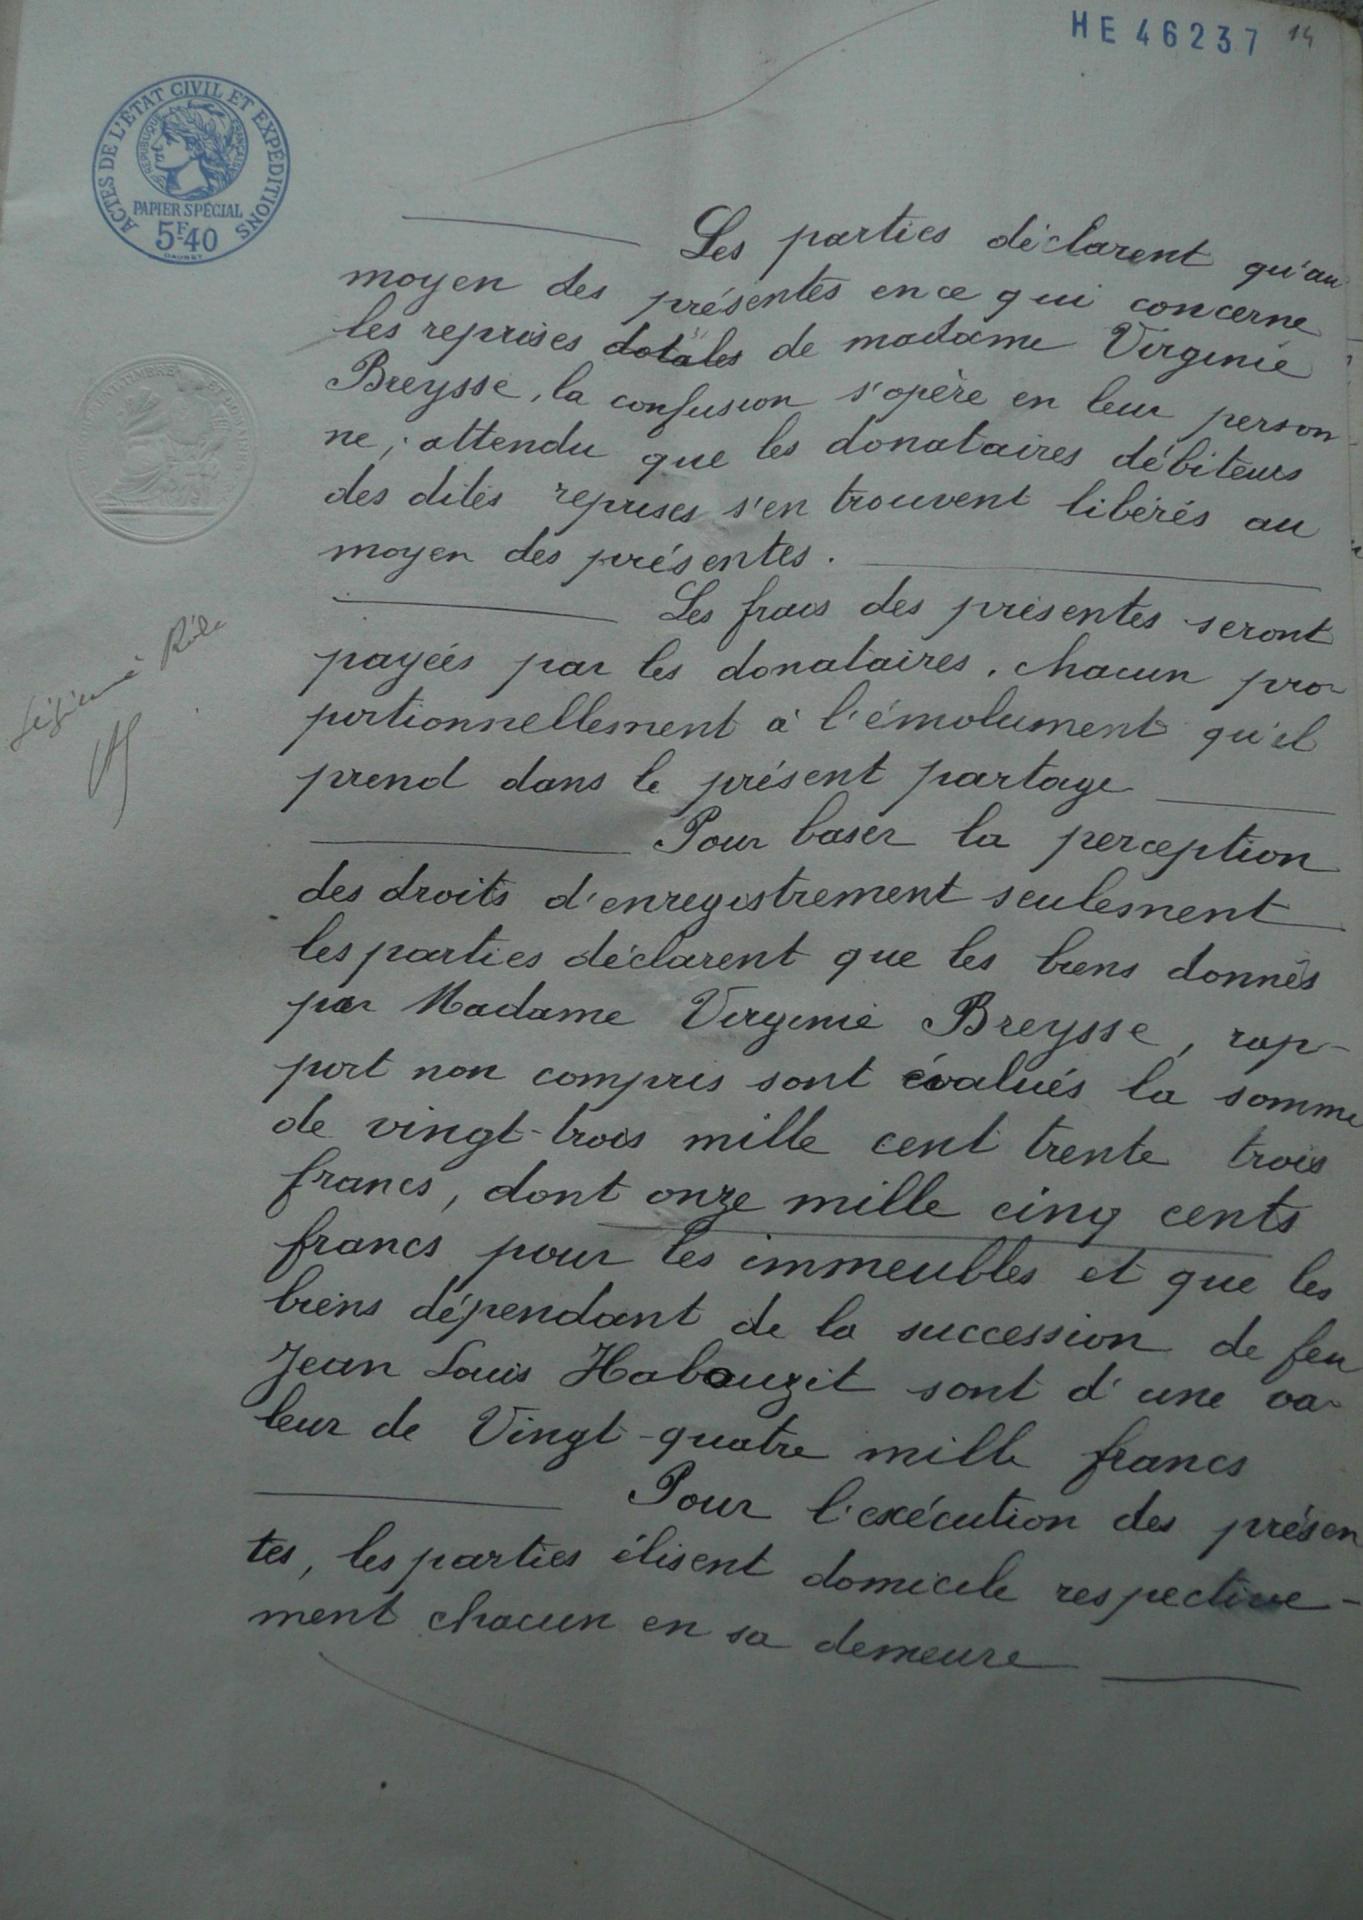 HE 46237 14
ACTES DE L'ÉTAT CIVIL ET EXPÉDITIONS
RÉPUBLIQUE FRANÇAISE
PAPIER SPÉCIAL
5F.40
Les parties déclarent qu'au
moyen des présentes en ce qui concerne
les reprises dotales de madame Virginie
Breysse, la confusion s'opère en leur person-
ne, attendu que les donataires débiteurs
des dites reprises s'en trouvent libérés au
moyen des présentes.
Les frais des présentes seront
payées par les donataires, chacun pro-
portionnellement à l'émolument qu'il
prend dans le présent partage
Pour baser la perception
des droits d'enregistrement seulement
les parties déclarent que les biens donnés
par Madame Virginie Breysse, rap-
port non compris sont évalués la somme
de vingt-trois mille cent trente trois
francs, dont onze mille cinq cents
francs pour les immeubles et que les
biens dépendant de la succession de feu
Jean Louis Habouzit sont d'une va-
leur de Vingt-quatre mille francs
Pour l'exécution des présen
tes, les parties élisent domicile respective-
ment chacun en sa demeure